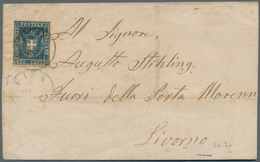 Al Signore,
Augusto Stihling.
Fuori della Porta Marenn
Livorno